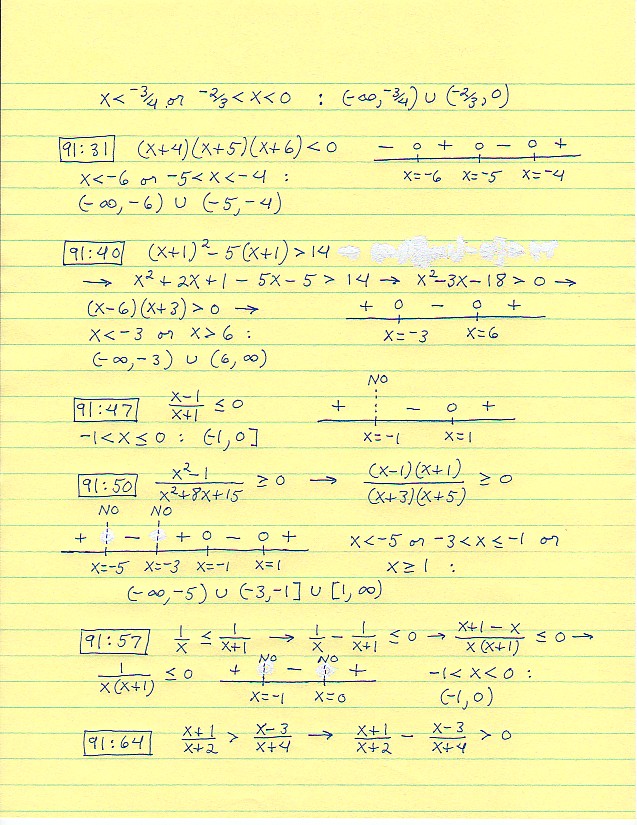 x < -3/4 or -2/3 < x < 0 : (-∞, -3/4) ∪ (-2/3, 0)
91:31 (x+4)(x+5)(x+6) < 0 − 0 + 0 − 0 +
x=-6 x=-5 x=-4
x < -6 or -5 < x < -4 :
(-∞, -6) ∪ (-5, -4)
91:40 (x+1)² - 5(x+1) > 14
→ x² + 2x + 1 - 5x - 5 > 14 → x² - 3x - 18 > 0 →
(x-6)(x+3) > 0 → + 0 − 0 +
x < -3 or x > 6 : x=-3 x=6
(-∞, -3) ∪ (6, ∞)
NO
91:47 (x-1)/(x+1) ≤ 0 + − 0 +
-1 < x ≤ 0 : (-1, 0] x=-1 x=1
91:50 (x²-1)/(x²+8x+15) ≥ 0 → (x-1)(x+1)/(x+3)(x+5) ≥ 0
NO NO
+ − + 0 − 0 + x < -5 or -3 < x ≤ -1 or
x=-5 x=-3 x=-1 x=1 x ≥ 1 :
(-∞, -5) ∪ (-3, -1] ∪ [1, ∞)
91:57 1/x ≤ 1/(x+1) → 1/x - 1/(x+1) ≤ 0 → (x+1-x)/x(x+1) ≤ 0 →
1/x(x+1) ≤ 0 + NO − NO + -1 < x < 0 :
x=-1 x=0 (-1, 0)
91:64 (x+1)/(x+2) > (x-3)/(x+4) → (x+1)/(x+2) - (x-3)/(x+4) > 0